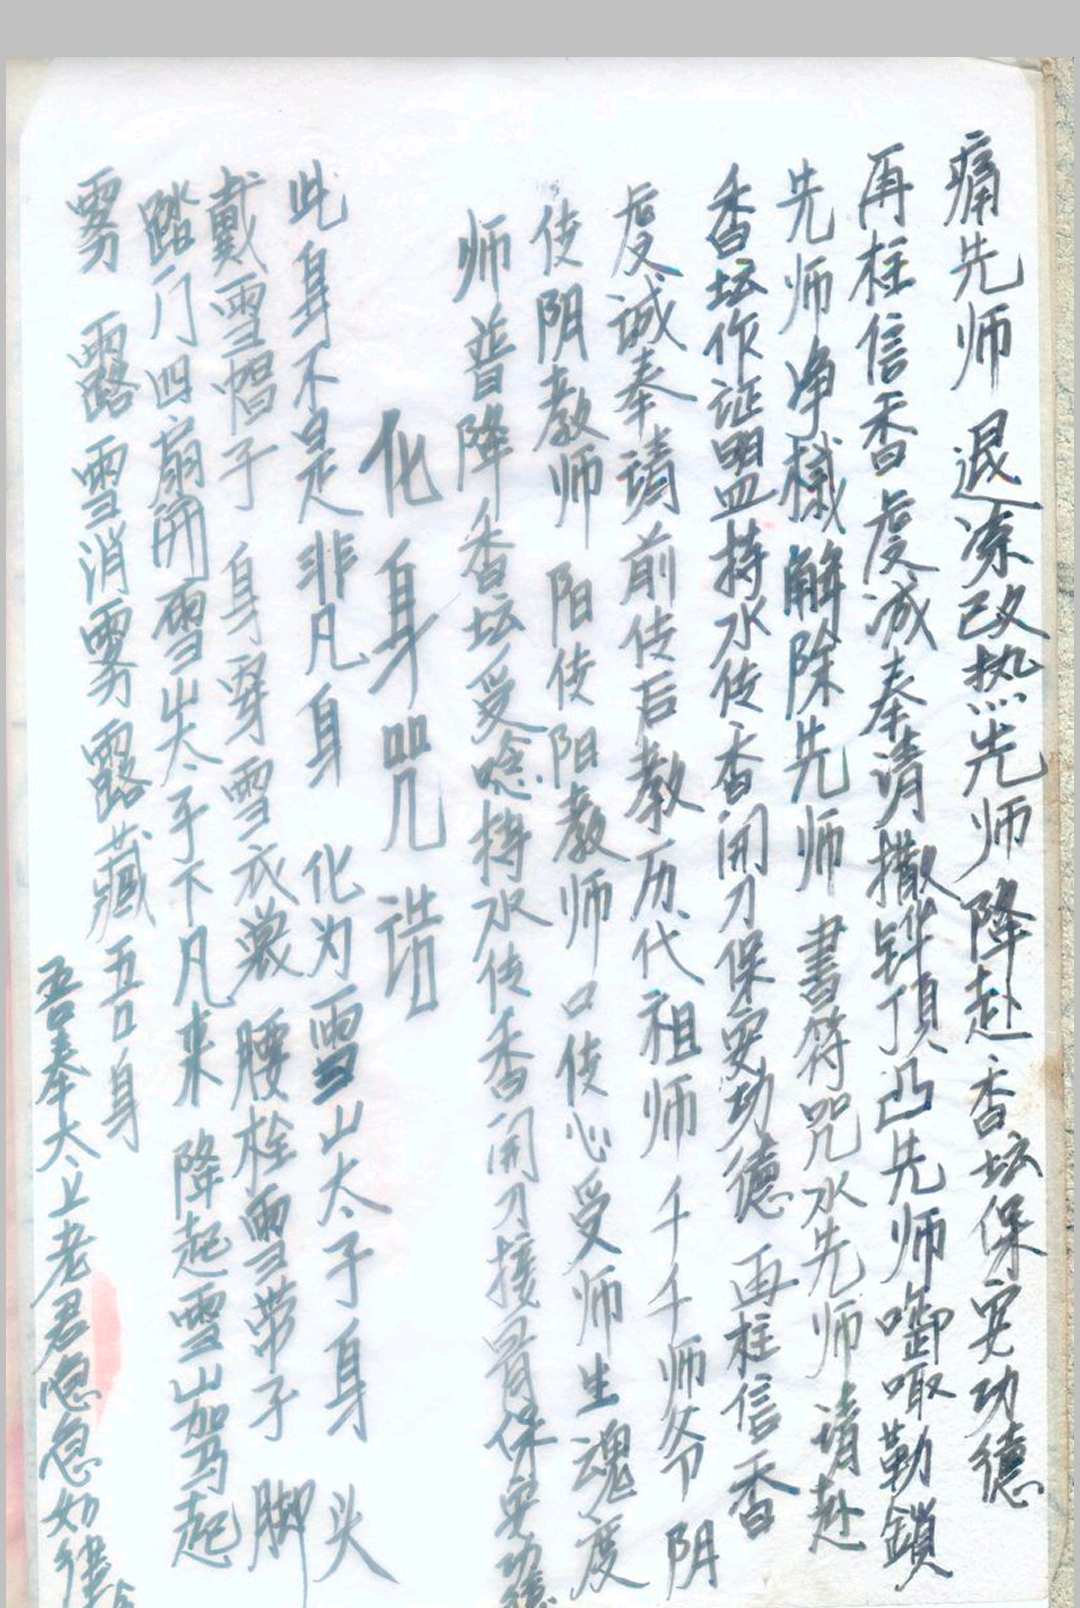 痛先师 退凉改热先师降赴香坛保安功德
再柱信香虔诚奉请撒铧顶凸先师啣嘅勒鎖
先师净櫼解除先师 書符咒水先师 请赴
香坛作证盟持水传香開刀保安功德 再柱信香
虔诚奉请前传后教历代祖师 千千师爷 阴
传阴教师 阳传阳教师 口传心受师生魂度
师 普降香坛受唸持水传香開刀接骨保安功德
化身咒诰
此身不是非凡身 化为雪山太子身 头
戴雪帽子 身穿雪衣裳 腰栓雪带子 脚
踏门四扇開雪山太子下凡来 降起雪山驾起
雾 露雪消雾露藏 吾身
吾奉太上老君急急如律令